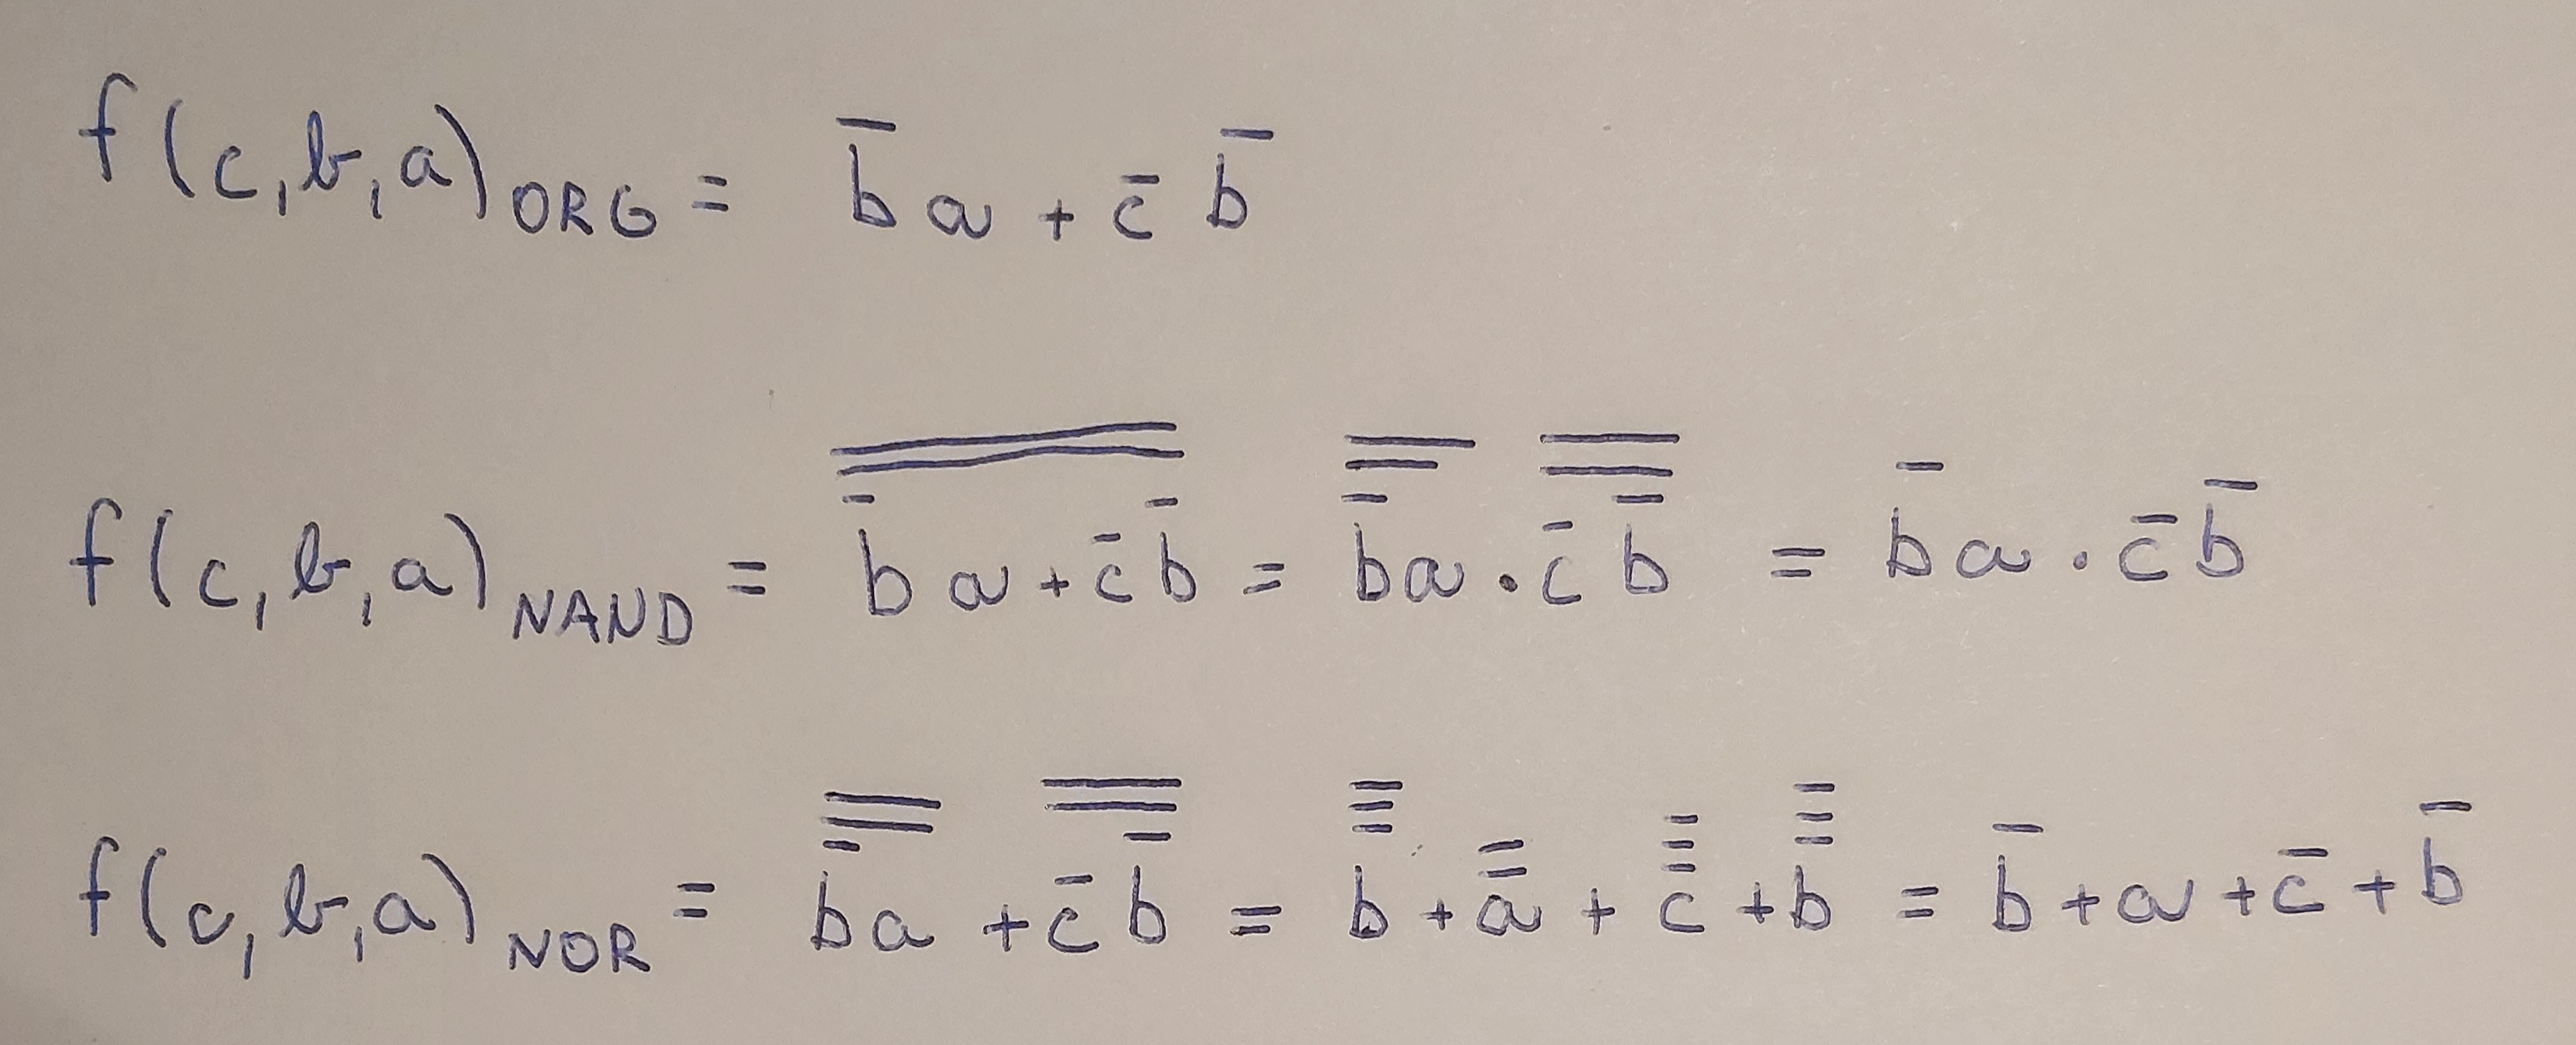 f(c,b,a)ORG = b̅ a + c̅ b̅
f(c,b,a)NAND = \overline{\overline{\overline{b} a + \overline{c} \overline{b}}} = \overline{\overline{\overline{b} a}} · \overline{\overline{\overline{c} \overline{b}}} = \overline{b} a · \overline{c} \overline{b}
f(c,b,a)NOR = \overline{\overline{\overline{b} a}} + \overline{\overline{\overline{c} \overline{b}}} = \overline{\overline{\overline{b}}} + \overline{\overline{a}} + \overline{\overline{\overline{c}}} + \overline{\overline{\overline{b}}} = \overline{b} + a + \overline{c} + \overline{b}